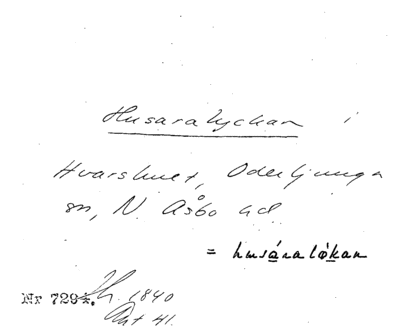 Husaralyckan i
Hvarshult, Oderljunga
sn, N. Åsbo hd
= husáralókan
Nr 7294. 1840
Ant 41.